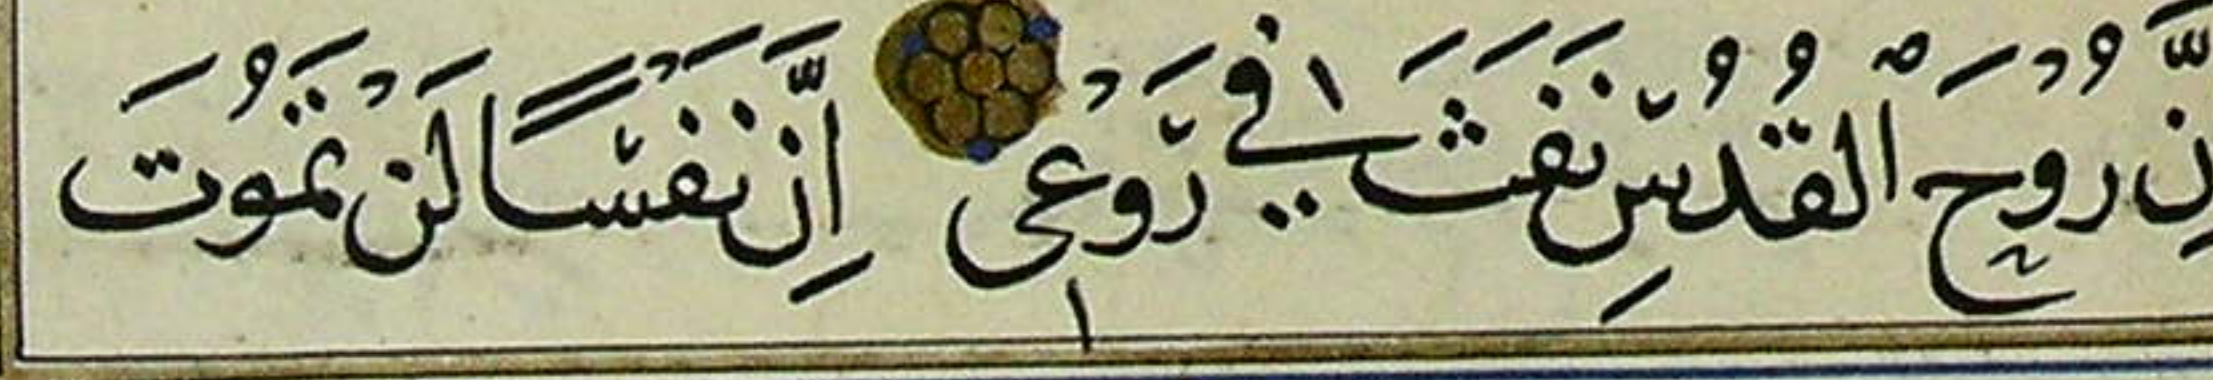 نَّ رُوْحَ الْقُدُسِ نَفَثَ فِي رَوْعِي اِنَّ نَفْسًا لَنْ تَمُوتَ